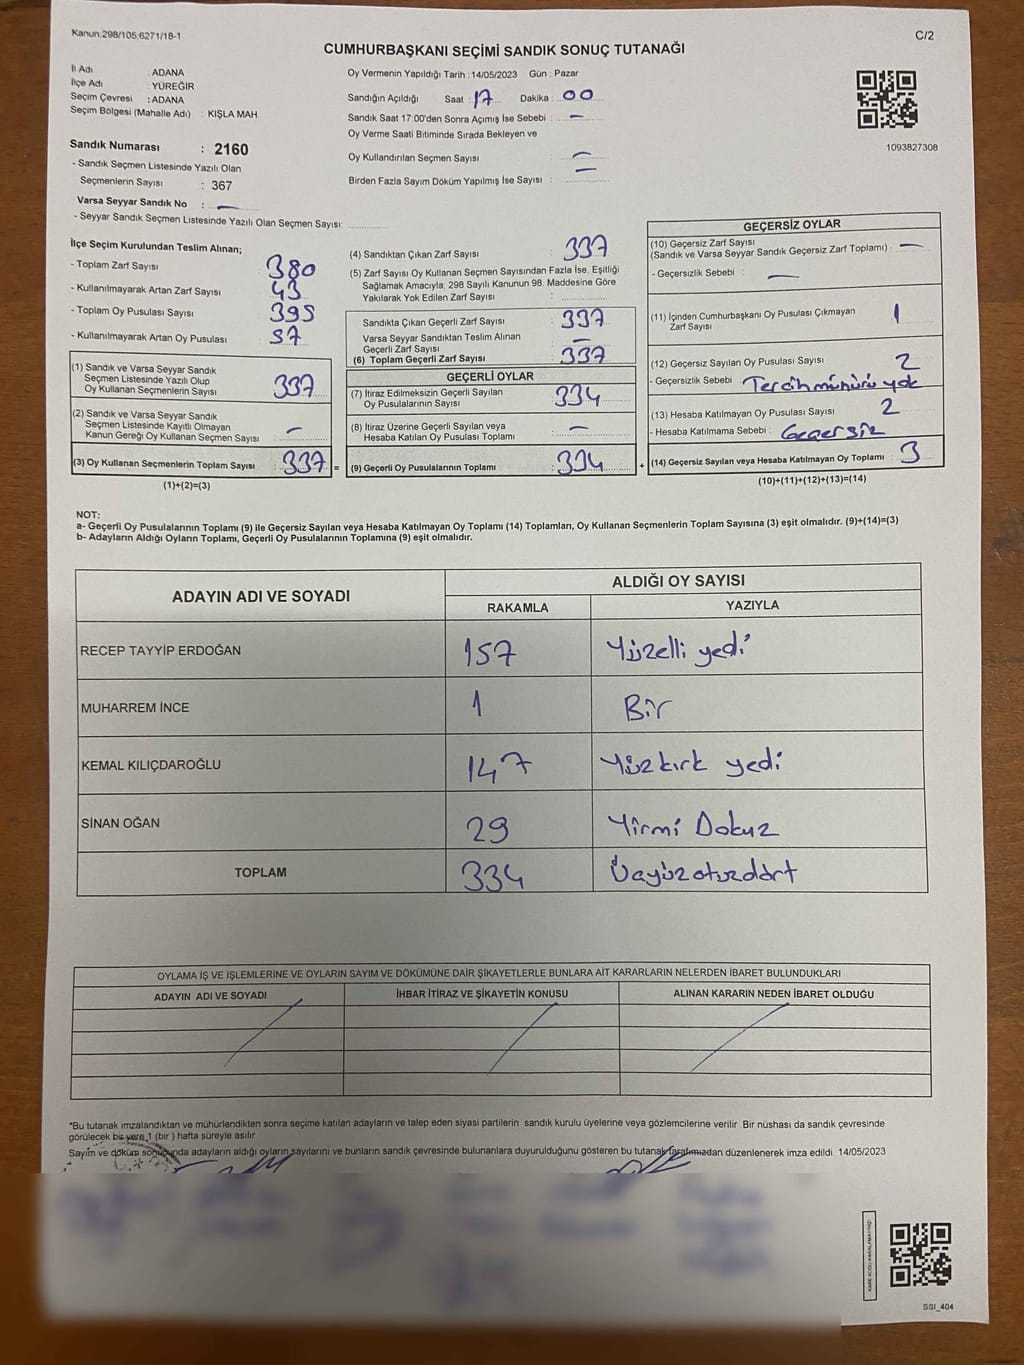 Kanun:298/105;6271/18-1
C/2
CUMHURBAŞKANI SEÇİMİ SANDIK SONUÇ TUTANAĞI
İl Adı : ADANA
İlçe Adı : YÜREĞİR
Seçim Çevresi : ADANA
Seçim Bölgesi (Mahalle Adı) : KIŞLA MAH.
Oy Vermenin Yapıldığı Tarih : 14/05/2023 Gün : Pazar
Sandığın Açıldığı Saat : 17 Dakika : 00
Sandık Saat 17.00'den Sonra Açımış İse Sebebi : –
Oy Verme Saati Bitiminde Sırada Bekleyen ve
Oy Kullandırılan Seçmen Sayısı : –
Birden Fazla Sayım Döküm Yapılmış İse Sayısı : –
1093827308
Sandık Numarası : 2160
- Sandık Seçmen Listesinde Yazılı Olan
Seçmenlerin Sayısı : 367
Varsa Seyyar Sandık No : –
- Seyyar Sandık Seçmen Listesinde Yazılı Olan Seçmen Sayısı:
İlçe Seçim Kurulundan Teslim Alınan;
- Toplam Zarf Sayısı : 380
- Kullanılmayarak Artan Zarf Sayısı : 43
- Toplam Oy Pusulası Sayısı : 395
- Kullanılmayarak Artan Oy Pusulası : 57
(1) Sandık ve Varsa Seyyar Sandık
Seçmen Listesinde Yazılı Olup
Oy Kullanan Seçmenlerin Sayısı : 337
(2) Sandık ve Varsa Seyyar Sandık
Seçmen Listesinde Kayıtlı Olmayan
Kanun Gereği Oy Kullanan Seçmen Sayısı : –
(3) Oy Kullanan Seçmenlerin Toplam Sayısı : 337 =
(1)+(2)=(3)
(4) Sandıktan Çıkan Zarf Sayısı : 337
(5) Zarf Sayısı Oy Kullanan Seçmen Sayısından Fazla İse, Eşitliği
Sağlamak Amacıyla; 298 Sayılı Kanunun 98. Maddesine Göre
Yakılarak Yok Edilen Zarf Sayısı :
Sandıkta Çıkan Geçerli Zarf Sayısı : 337
Varsa Seyyar Sandıktan Teslim Alınan
Geçerli Zarf Sayısı : –
(6) Toplam Geçerli Zarf Sayısı : 337
GEÇERLİ OYLAR
(7) İtiraz Edilmeksizin Geçerli Sayılan
Oy Pusulalarının Sayısı : 334
(8) İtiraz Üzerine Geçerli Sayılan veya
Hesaba Katılan Oy Pusulası Toplamı : –
(9) Geçerli Oy Pusulalarının Toplamı : 334 +
GEÇERSİZ OYLAR
(10) Geçersiz Zarf Sayısı
(Sandık ve Varsa Seyyar Sandık Geçersiz Zarf Toplamı) : –
- Geçersizlik Sebebi : –
(11) İçinden Cumhurbaşkanı Oy Pusulası Çıkmayan
Zarf Sayısı : 1
(12) Geçersiz Sayılan Oy Pusulası Sayısı : 2
- Geçersizlik Sebebi : Tercih mühürü yok
(13) Hesaba Katılmayan Oy Pusulası Sayısı : 2
- Hesaba Katılmama Sebebi : Geçersiz
(14) Geçersiz Sayılan veya Hesaba Katılmayan Oy Toplamı : 3
(10)+(11)+(12)+(13)=(14)
NOT:
a- Geçerli Oy Pusulalarının Toplamı (9) ile Geçersiz Sayılan veya Hesaba Katılmayan Oy Toplamı (14) Toplamları, Oy Kullanan Seçmenlerin Toplam Sayısına (3) eşit olmalıdır. (9)+(14)=(3)
b- Adayların Aldığı Oyların Toplamı, Geçerli Oy Pusulalarının Toplamına (9) eşit olmalıdır.
ADAYIN ADI VE SOYADI ALDIĞI OY SAYISI
RAKAMLA YAZIYLA
RECEP TAYYİP ERDOĞAN 157 Yüzelli yedi
MUHARREM İNCE 1 Bir
KEMAL KILIÇDAROĞLU 147 Yüzkırk yedi
SİNAN OĞAN 29 Yirmi Dokuz
TOPLAM 334 Üçyüzotuzdört
OYLAMA İŞ VE İŞLEMLERİNE VE OYLARIN SAYIM VE DÖKÜMÜNE DAİR ŞİKAYETLERLE BUNLARA AİT KARARLARIN NELERDEN İBARET BULUNDUKLARI
ADAYIN ADI VE SOYADI İHBAR İTİRAZ VE ŞİKAYETİN KONUSU ALINAN KARARIN NEDEN İBARET OLDUĞU
*Bu tutanak imzalandıktan ve mühürlendikten sonra seçime katılan adayların ve talep eden siyasi partilerin sandık kurulu üyelerine veya gözlemcilerine verilir. Bir nüshası da sandık çevresinde
görülecek bir yere 1 (bir ) hafta süreyle asılır
Sayım ve döküm sonucunda adayların aldığı oyların sayılarını ve bunların sandık çevresinde bulunanlara duyurulduğunu gösteren bu tutanak tarafımızdan düzenlenerek imza edildi. 14/05/2023
KARE KODU KARALAMAYINIZ!
SSI_404